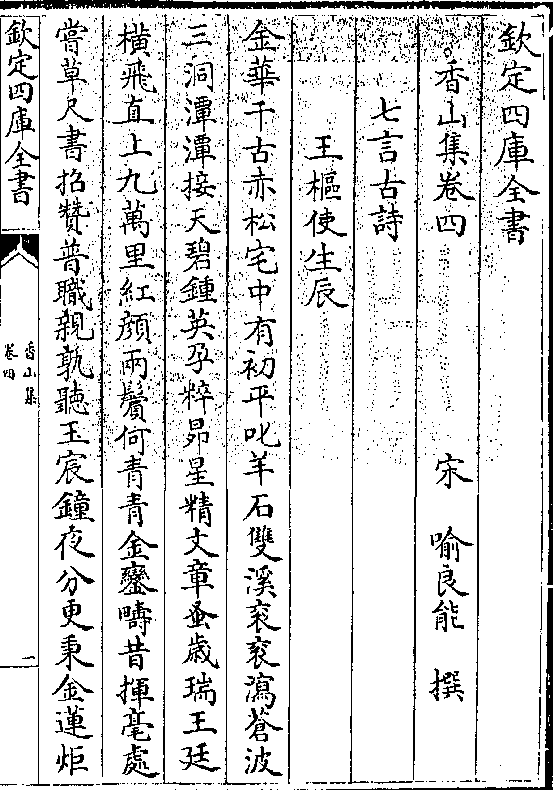 欽定四庫全書
香山集卷四　　　宋　喻良能　撰
七言古詩
王樞使生辰
金華千古赤松宅中有初平叱羊石雙溪衮衮瀉蒼波
三洞潭潭接天碧鍾英孕粹昴星精文章蚤歲瑞王廷
橫飛直上九萬里紅顔兩鬢何青青金鑾疇昔揮毫處
嘗草尺書招贊普職親孰聽玉宸鐘夜分更秉金蓮炬
欽定四庫全書
香山集
卷四
一